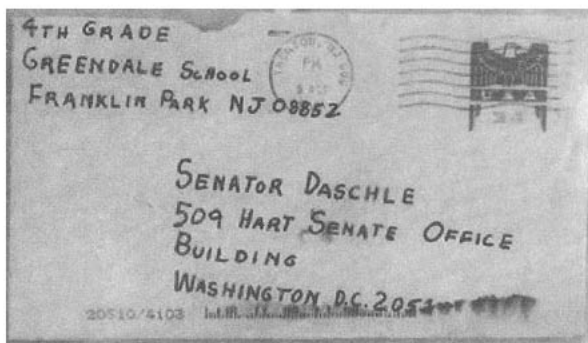 4TH GRADE
GREENDALE SCHOOL
FRANKLIN PARK NJ 08852
PM
USA
SENATOR DASCHLE
509 HART SENATE OFFICE
BUILDING
WASHINGTON D.C. 2051
20510/4103